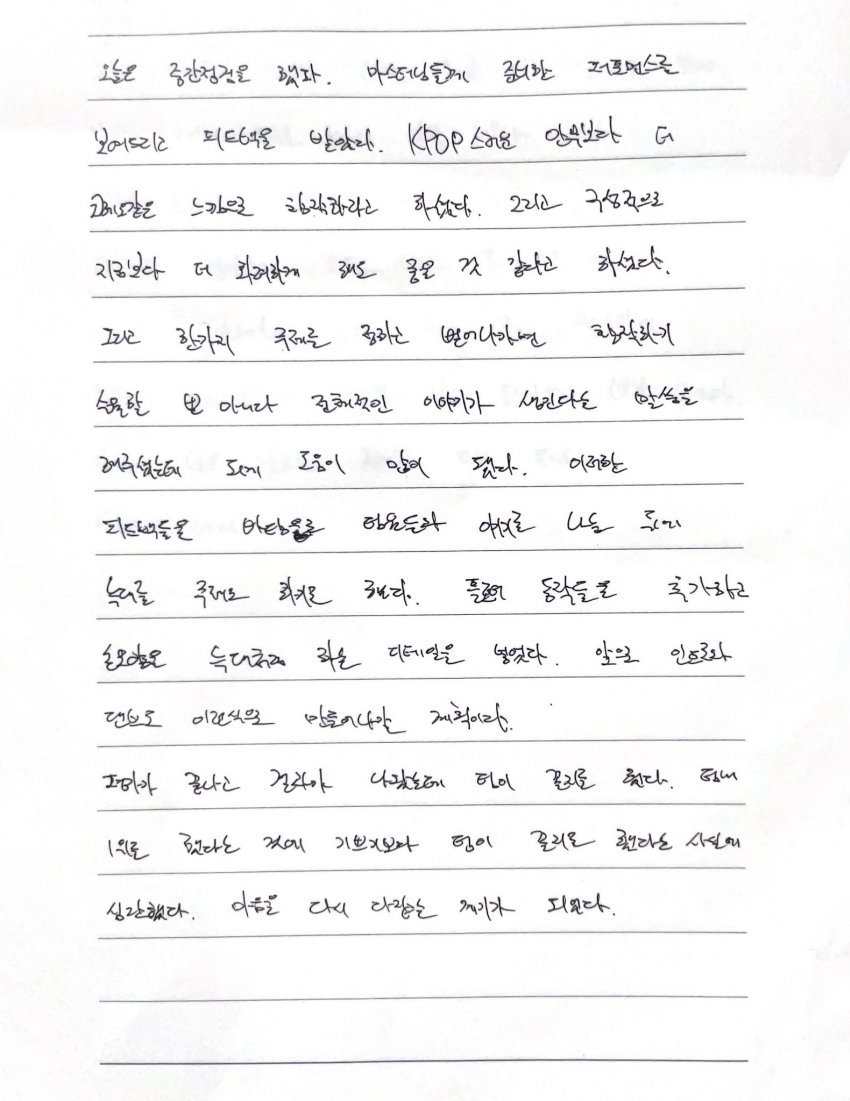 오늘은 중간점검을 했다. 마스터님들께 준비한 퍼포먼스를
보여드리고 피드백을 받았다. KPOP스러운 안무보다 더
느낌으로 창작하라고 하셨다. 그리고 구성적으로
지금보다 더 화려하게 해도 좋은 것 같다고 하셨다.
그리고 한가지 주제를 정하고 벗어나가면 창작하기
수월할 뿐 아니라 전체적인 이야기가 생긴다는 말씀을
해주셨는데 되게 도움이 많이 됐다. 이러한
피드백들을 바탕으로 팀원들과 얘기를 나눈 뒤에
늑대를 주제로 하기로 했다. 동작들을 추가하고
늑대처럼 하는 디테일을 넣었다. 앞으로 인트로와
댄브도 이런식으로 만들어나갈 계획이다.
끝나고 결과가 나왔는데 팀이 꼴찌를 했다. 팀내
1위를 했다는 것에 기쁘기보다 팀이 꼴찌를 했다는 사실에
심란했다. 마음을 다시 다잡는 계기가 되었다.